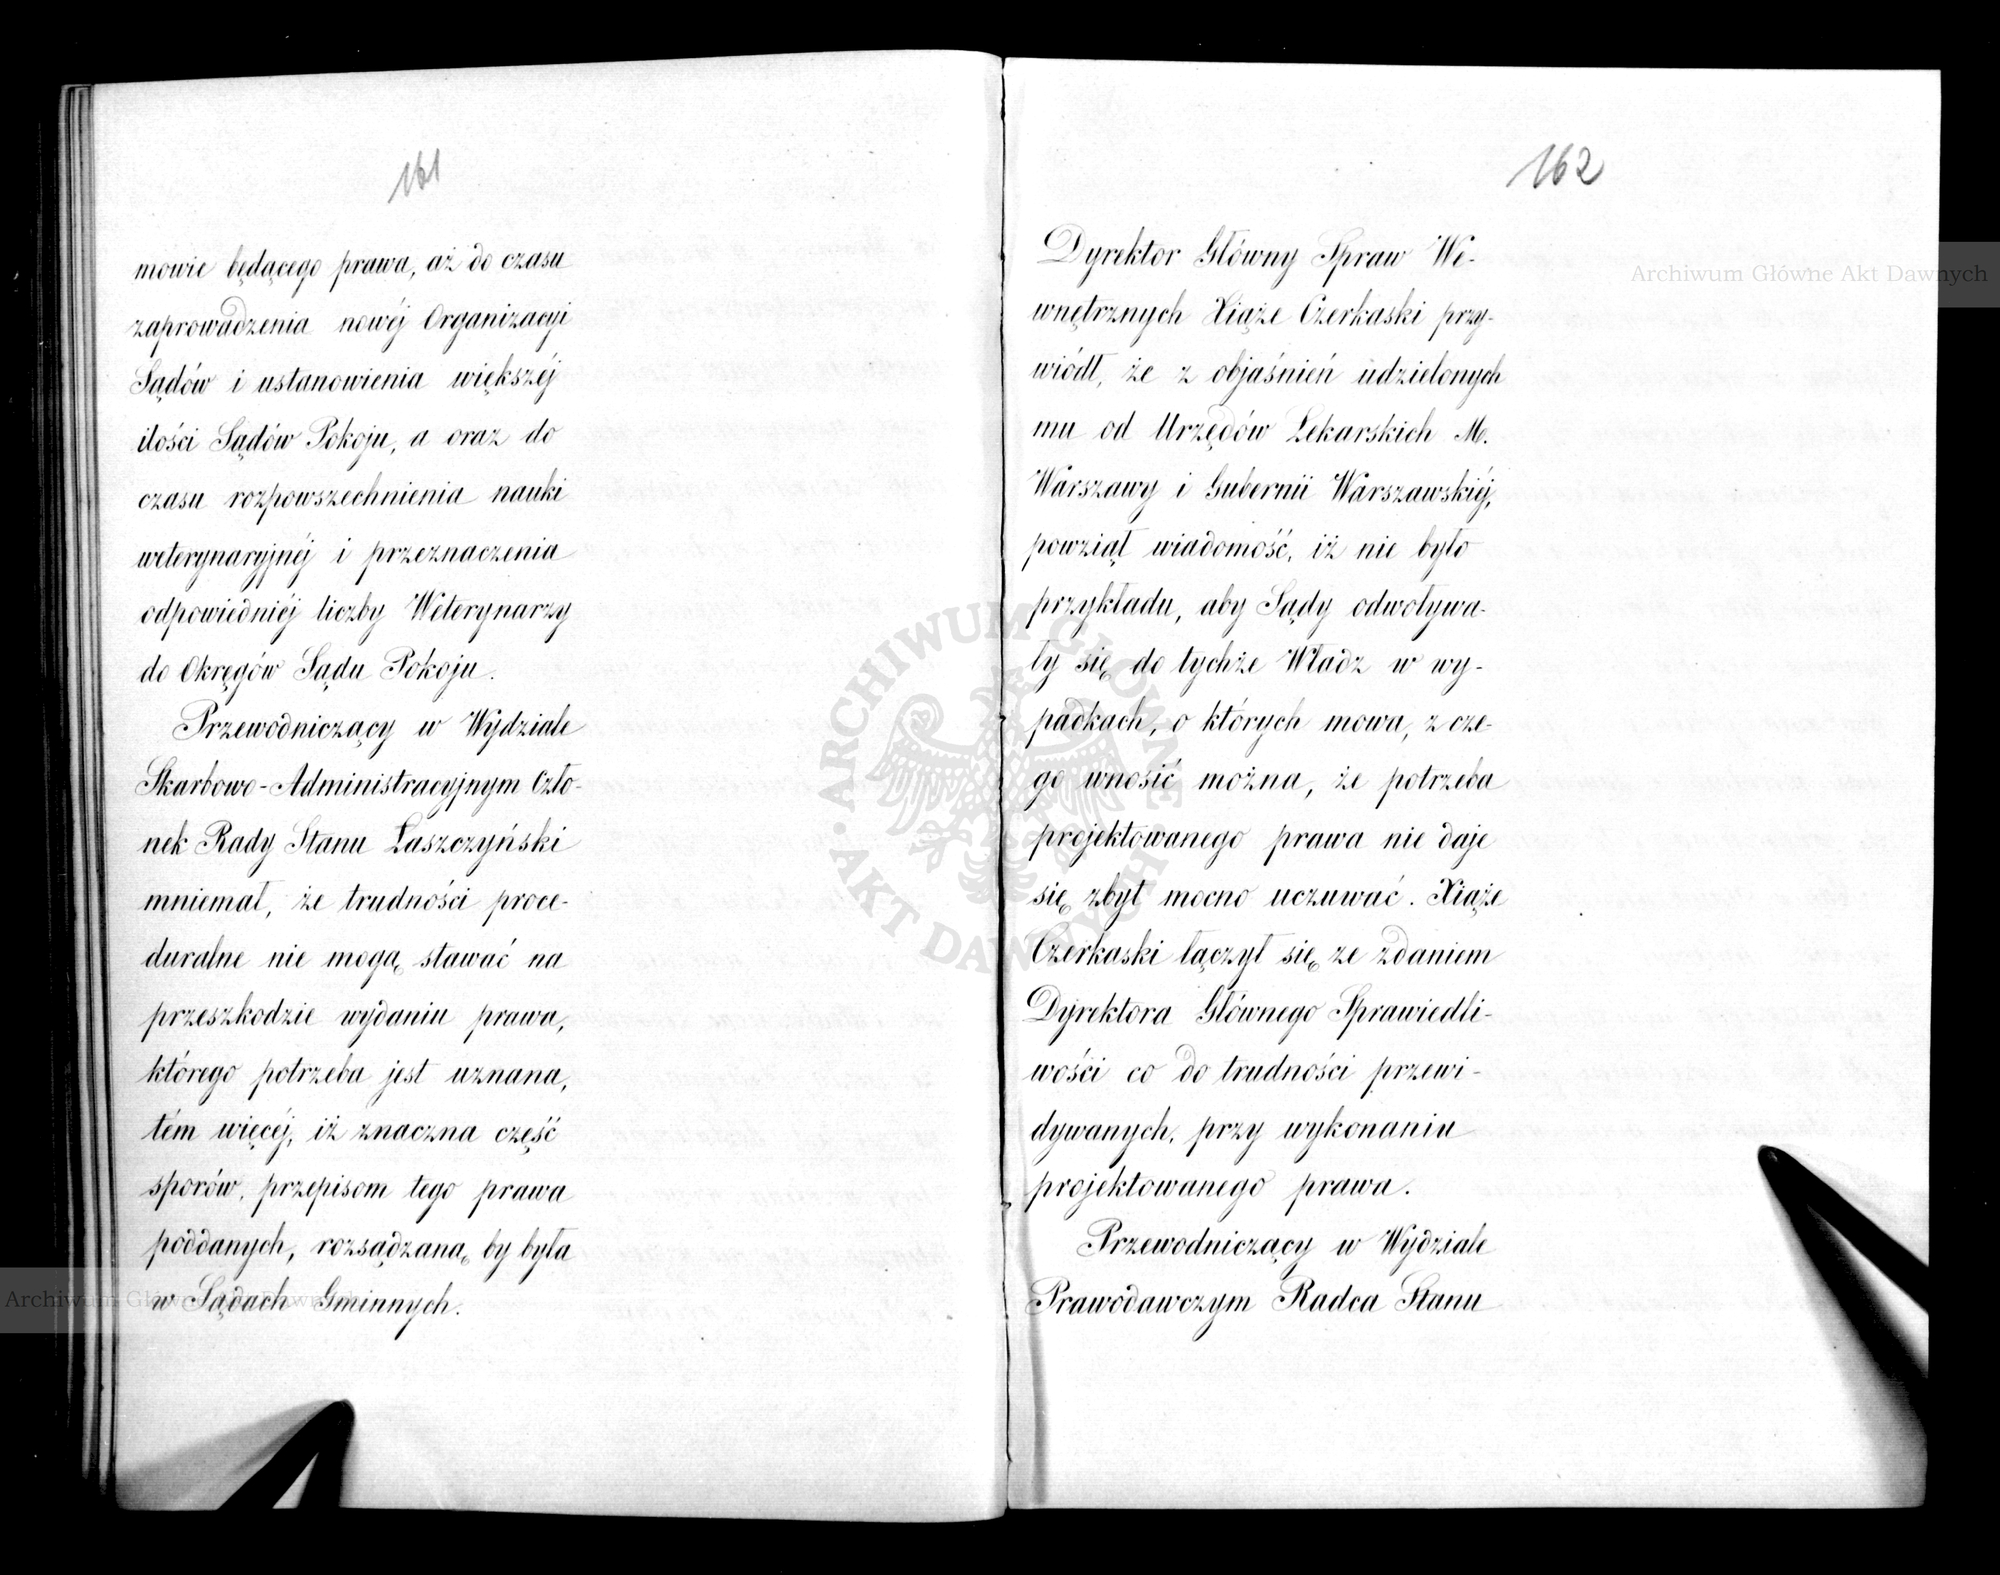 161
mowie będącego prawa, aż do czasu
zaprowadzenia nowéj Organizacyi
Sądów i ustanowienia większéj
ilości Sądów Pokoju, a oraz do
czasu rozpowszechnienia nauki
weterynaryjnéj i przeznaczenia
odpowiedniéj liczby Weterynarzy
do Okręgów Sądu Pokoju.
Przewodniczący w Wydziale
Skarbowo-Administracyjnym Czło-
nek Rady Stanu Łaszczyński
mniemał, że trudności proce-
duralne nie mogą stawać na
przeszkodzie wydaniu prawa,
którego potrzeba jest uznana,
tém więcéj, iż znaczna część
sporów, przepisom tego prawa
poddanych, rozsądzaną by była
w Sądach Gminnych.
162
Dyrektor Główny Spraw We-
wnętrznych Xiąże Czerkaski przy-
wiódł, że z objaśnień udzielonych
mu od Urzędów Lekarskich M.
Warszawy i Gubernii Warszawskiéj,
powziął wiadomość, iż nie było
przykładu, aby Sądy odwoływa-
ły się do tychże Władz w wy-
padkach, o których mowa, z cze-
go wnosić można, że potrzeba
projektowanego prawa nie daje
się zbyt mocno uczuwać. Xiąże
Czerkaski łączył się ze zdaniem
Dyrektora Głównego Sprawiedli-
wości co do trudności przewi-
dywanych, przy wykonaniu
projektowanego prawa.
Przewodniczący w Wydziale
Prawodawczym Radca Stanu
Archiwum Główne Akt Dawnych
Archiwum Główne Akt Dawnych
ARCHIWUM GŁÓWNE • AKT DAWNYCH •